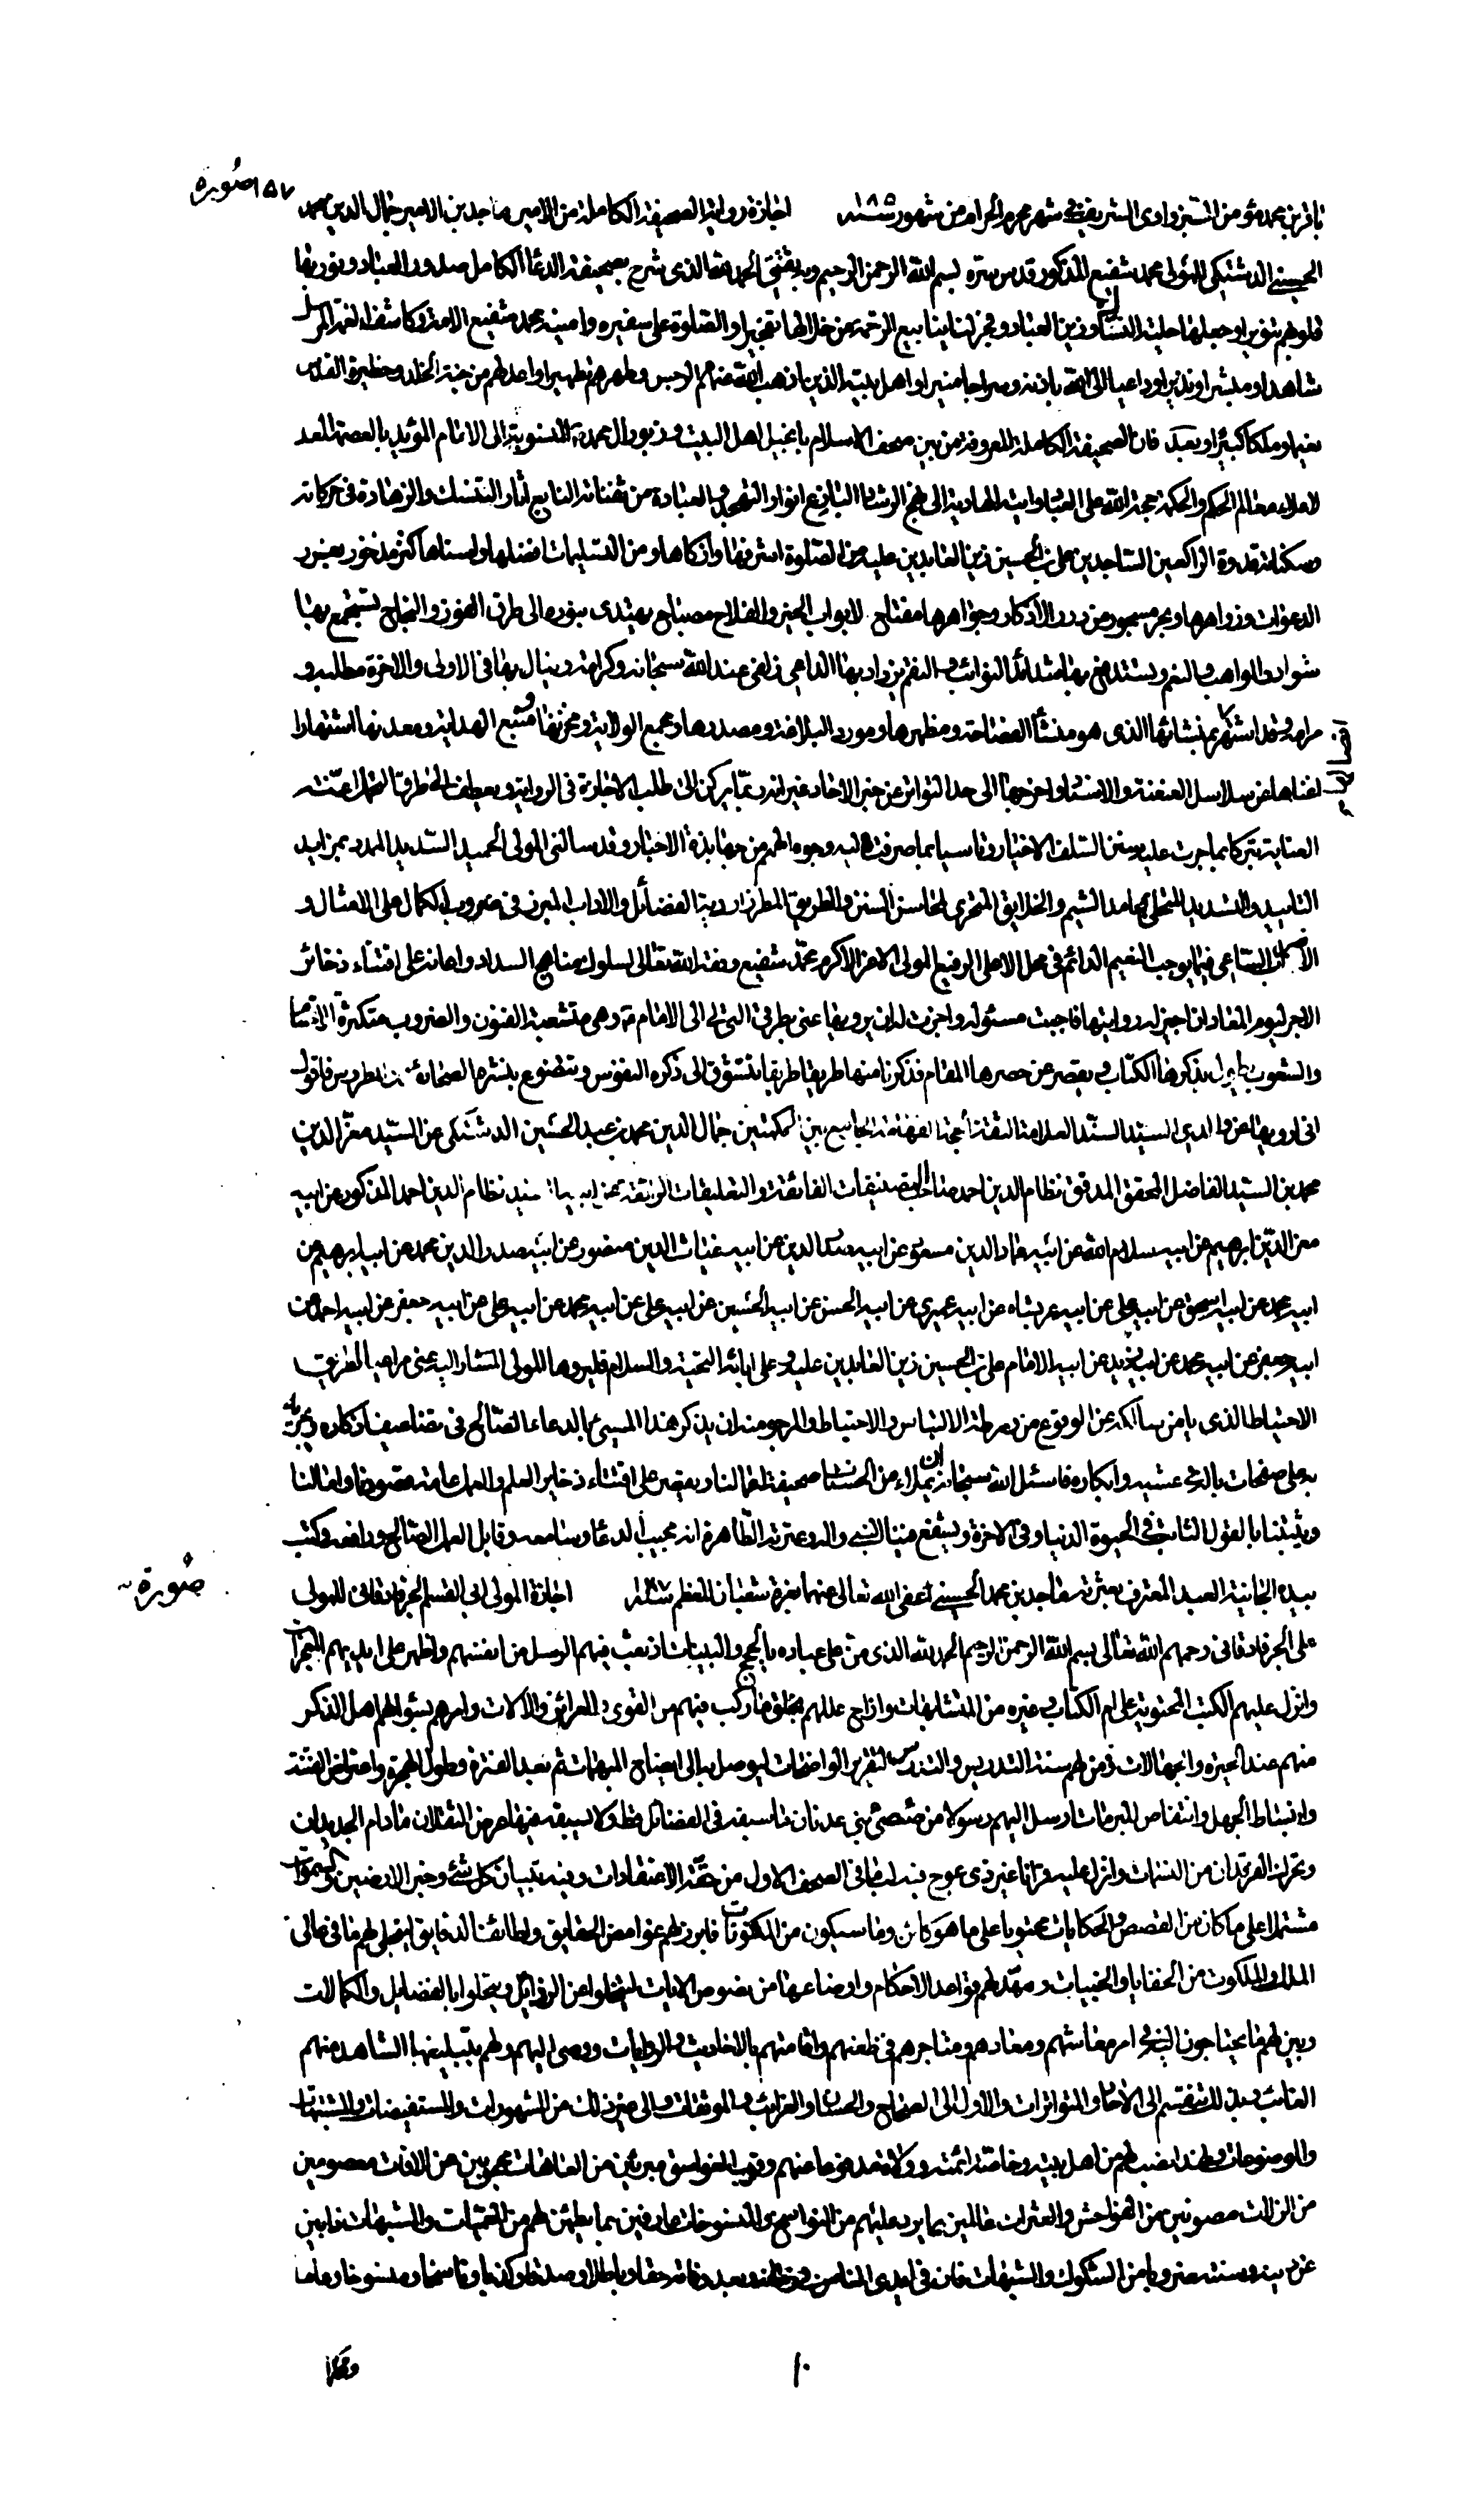 ١٥٧ صورة
باقر بن محمد مؤمن السبزوادى الشريف في شهر محرم الحرام من شهور ١٠٨٥ اجازة رواية الصحيفة الكاملة من الامير ماجد بن الامير جمال الدين محمد
الحسيني الدشتكي للمولى محمد شفيع المذكور قدس سره بسم الله الرحمن الرحيم وبه ثقتي الحمد لله الذى شرح بصحيفة الدعا الكامل صدور العباد ونور بها
قلوبهم تنويرا وجعلها حلية وزين العباد وفجر لنا ينابيع الرحمة من خلالها تفجيرا والصلوة على سفيره وامينه محمد شفيع الامة وكاشف الغمة المرسل
شاهدا ومبشرا ونذيرا وداعيا الى الله باذنه وسراجا منيرا واهل بيته الذين اذهب الله عنهم الرجس وطهرهم تطهيرا واعد لهم من جنة الخلد وحظيرة القدس
نعيما وملكا كبيرا وبعد فان الصحيفة الكاملة المعروفة من بين صحف الاسلام بانجيل اهل البيت وزبور ال محمد المنسوبة الى الامام المؤيد بالعصمة المعد
لاعلاء معالم الحكم والحكمة حجة الله على العباد وايته الهادية الى نهج الرشاد البازغ انوار التهجد والعبادة من ثفناته النابع اثار التنسك والزهادة في حركاته
وسكناته قدوة الراكعين الساجدين على بن الحسين زين العابدين عليه من الصلوة اشرفها وازكاها ومن التسليمات افضلها واسناها كنز مذخور بغرر
الدعوات وزواهرها وبحر مسجور من درر الاذكار وجواهرها مفتاح لابواب الخير والفلاح مصباح يهتدى بنوره الى طرق الفوز والنجاح تستجمع بها
شوارد المواهب والنعم ويستدفع بها شدائد النوائب والنقم يزداد بها الداعي زلفى عند الله سبحانه وكرامة وينال بها في الاولى والاخرة مطلبه و
مرامه وقد اشتهر نسبتها الذى هو منشأ الفصاحة ومظهرها ومورد البلاغة ومصدرها ومجمع الولاية ومخزنها ومنبع الهداية ومعدنها اشتهارا
اغناها عن سلاسل العنعنة والاسناد واخرجها الى حد التواتر عن خبر الاحاد غير انه ربما يركن الى طلب الاجازة في الرواية ويعطف الى طرق التحمل اعنة
العناية تبركا بما جرت عليه سنن السلف الاخيار وتاسيا بما صرفت اليه وجوه الهمم من جهابذة الاخبار وقد سالني المولى الحميد السديد الممدد بمزايد
التاييد والتسديد المتحلي بمحامد الشيم والخلايق المتحرى لمحاسن السنن والطريق المطرز اردية الفضائل والاداب المبرز في ضروب الكمال على الامثال و
الساعي فيما يوجب النعيم الدائم في محل الاعلى الرفيع المولى الاعز الاكرم محمد شفيع وفقه الله تعالى لسلوك مناهج السداد واعانه على اقتناء ذخائر
الاجر ليوم المعاد ان اجيز له روايتها فاجبت مسئوله واجزت له ان يرويها عني بطرقي التي لي الى الامام ع وهي متشعبة الفنون والضروب متكثرة
والشعوب بذكرها الكتاب ويقصر عن حصرها المقام فذكرنا منها طريقا تتشوق الى ذكره النفوس وتتضوع بنشره فاقول
اني ارويها عن والدي السيد السند العلامة الثقة الفهامة الجامع بين الحكمتين جمال الدين محمد بن عبد الحسين الدشتكي عن السيد معز الدين
محمد بن السيد الفاضل المحقق المدقق نظام الدين احمد صاحب التصنيفات الفائقة والتعليقات الرائقة عن ابيه نظام الدين احمد المذكور عن ابيه
معز الدين ابرهيم عن ابيه سلام الله عن ابيه عماد الدين مسعود عن ابيه الدين عن ابيه غياث الدين منصور عن ابيه صدر الدين محمد عن ابيه ابرهيم عن
ابيه محمد عن ابيه اسحق عن ابيه على عن ابيه عربشاه عن ابيه عن ابيه الحسن عن ابيه الحسين عن ابيه على عن ابيه محمد عن ابيه على عن ابيه جعفر عن ابيه احمد عن
ابيه جعفر عن ابيه محمد عن ابيه زيد عن ابيه الامام على بن الحسين زين العابدين عليه وعلى ابائه التحية والسلام فليروها المولى المشار اليه عني مراعيا لطريق
الاحتياط الذى يامن سالكه عن الوقوع من ورطة الالتباس والاحتياط والمرجو منه ان يذكر هذا المسيء بالدعاء الصالح في تضاعيف اذكاره
به على صفحات باله في عشيه وابكاره فاسئل الله سبحانه ان يملاء من الحسنات صحيفة اعمالنا ويقصر على اقتناء ذخاير العلم والعمل عامة قصودنا وامالنا
ويثبتنا بالقول الثابت في الحيوة الدنيا وفي الاخرة ويشفع فينا النبي واله وعترته الطاهرة انه مجيب الدعا وسامعه وقابل العمل الصالح ورافعه وكتب
بيده الجانية العبد المعترف بعثرته ماجد بن محمد الحسيني عفى الله تعالى عنهما بغرة شعبان المعظم اجازة المولى ابى القسم الجرفادقانى للمولى
صورة
على الجرفادقانى رحمهم الله تعالى بسم الله الرحمن الرحيم الحمد لله الذى من على عباده بالحجج والبينات اذ بعث فيهم الرسل من انفسهم واظهر على ايديهم المعجزات
وانزل عليهم الكتب المحتوية على ام الكتاب وغيره من المتشابهات وازاح عللهم بخلق ما ركب فيهم من القوى والغرائز والالات وامرهم بسؤالهم اهل الذكر
منهم عند الحيرة والجهالات فمن لهم سنة التدريس والتدرس لتقرير الواضحات ليوصل بها الى ايضاح المبهمات ثم بعد الفترة وطول الهجرة واعتراض الفتنة
وانبساط الجهل وانتقاض المبرمات ارسل اليهم رسولا من ضئضئ بني عدنان ما سبقه في الفضائل قط ولا يسبقه فيها عرض الثقلان ما دام الجديدان
وتحرك الفرقدان من النسمات وانزل عليه قرانا غير ذى عوج فيه لما في الصحف الاول من حقة الاعتقادات وفيه تبيان كل شئ وخبر الارضين والسموات
مشتملا على ما كان من القصص والحكايات محتويا على ما هو كائن وما سيكون من المكونات فابرز لهم غوامض الحقايق ولطائف الدقايق ليجلي لهم ما في عالمي
الملك والملكوت من الخفايا والخبيات ومهد لهم قواعد الاحكام واوضاعها من نصوص الايات ليتخلوا عن الرذائل ويتحلوا بالفضايل والكمالات
وبين لهم ما يحتاجون اليه في امر معاشهم ومعادهم ومتاجرهم في ظعنهم واقامتهم بالاحاديث والروايات ووصى اليهم ولهم بتبليغها الشاهد منهم
الغائب وبذلك تنقسم الى الاحاد والمتواترات والاول الى الصحاح والحسان والغرايب والموثقات والى غير ذلك من المشهورات والمستفيضات والمشتبهات
والموضوعات ولهذا نصب لهم من اهل بيته وخاصته ائمة وولاة مدفوعا عنهم وقوب الغواسق مبرئين من العاهات محجوبين عن الافات معصومين
من الزلات مصونين من الفواحش والعثرات عالمين بما يرد عليهم من النواسخ والمنسوخات عارفين بما يطمئن لهم من المعميات والشبهات ذابين
عن دينه وسنته ضروبا من الشكوك والشبهات فان في ايدى الناس في حياته وبعد وفاته حقا وباطلا وصدقا وكذبا وناسخا ومنسوخا وعاما
١٠